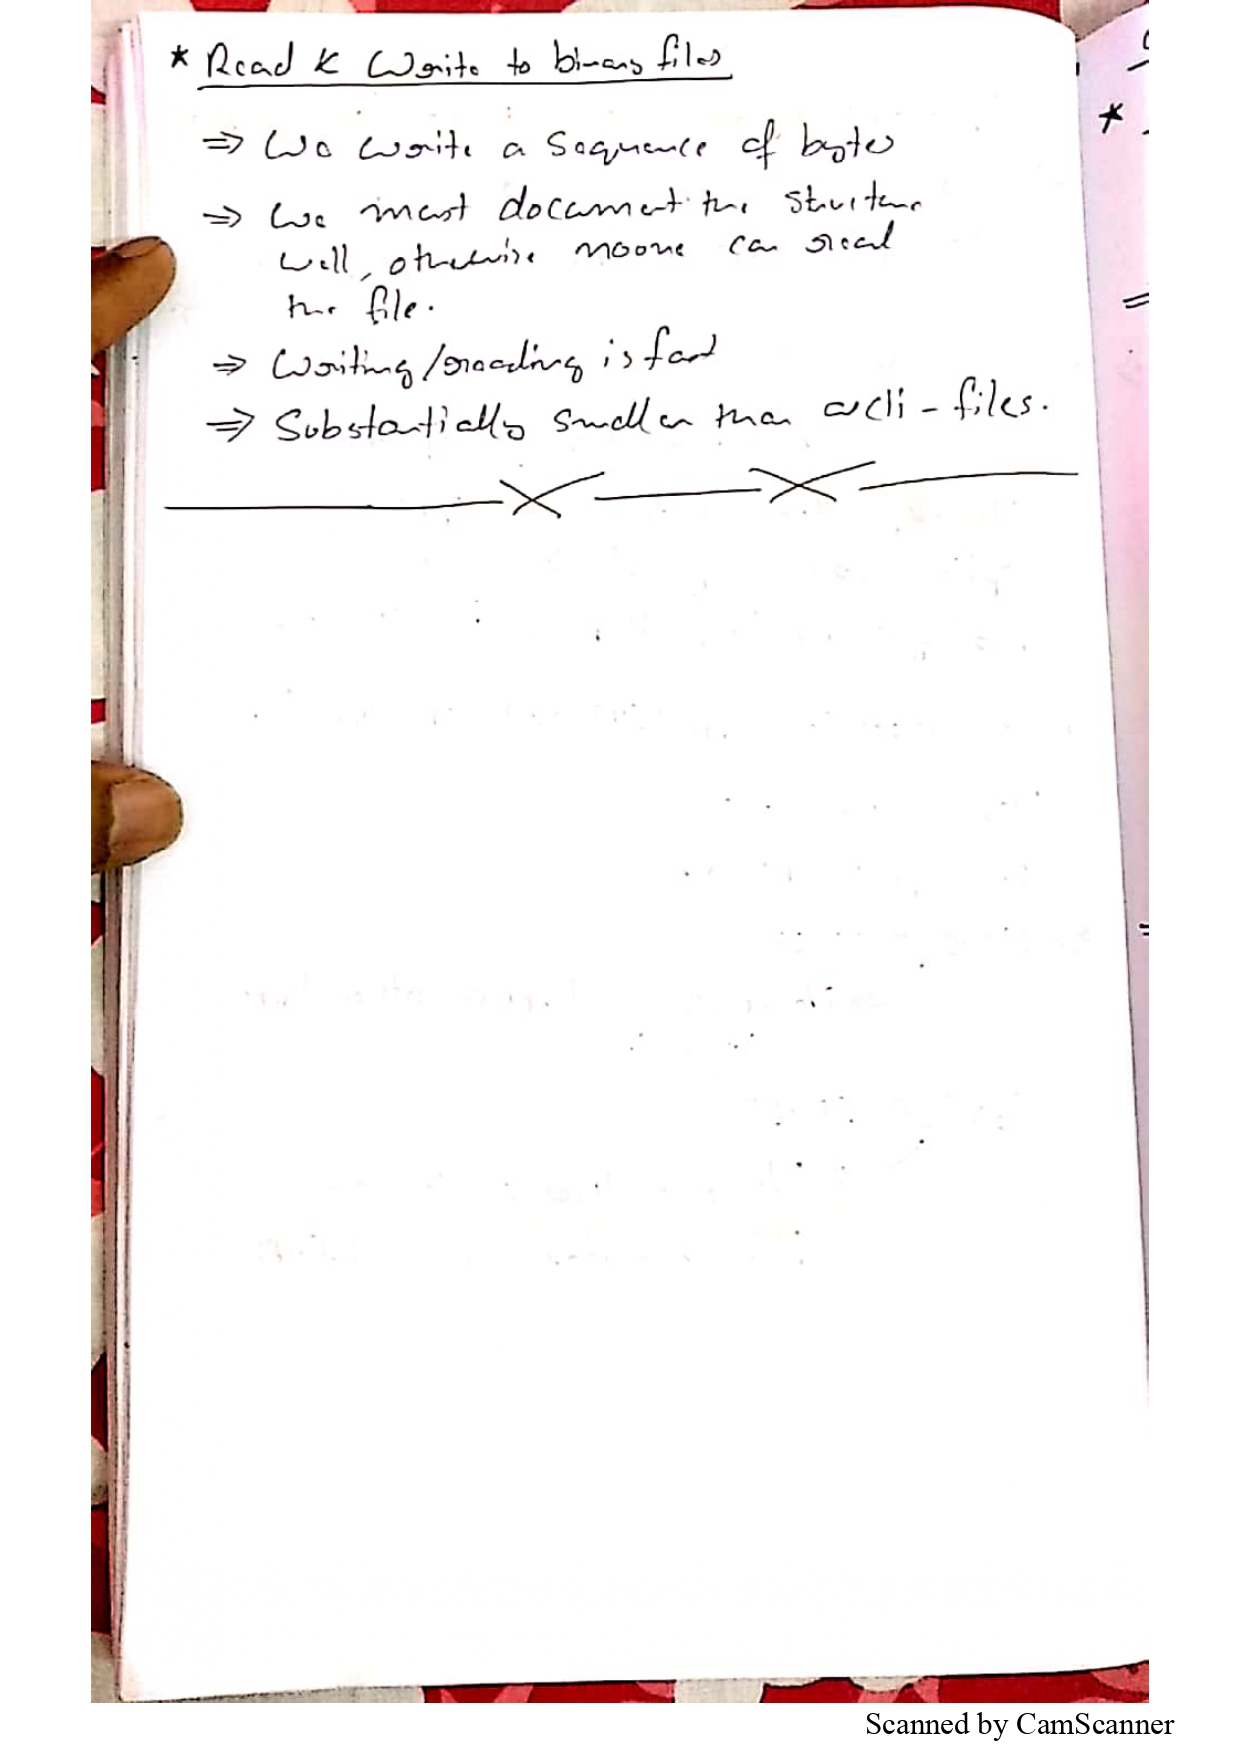 * Read & Write to binary files
⇒ We write a sequence of bytes
⇒ We must document the structure
well, otherwise noone can read
the file.
⇒ Writing/reading is fast
⇒ Substantially smaller than ascii-files.
*
Scanned by CamScanner